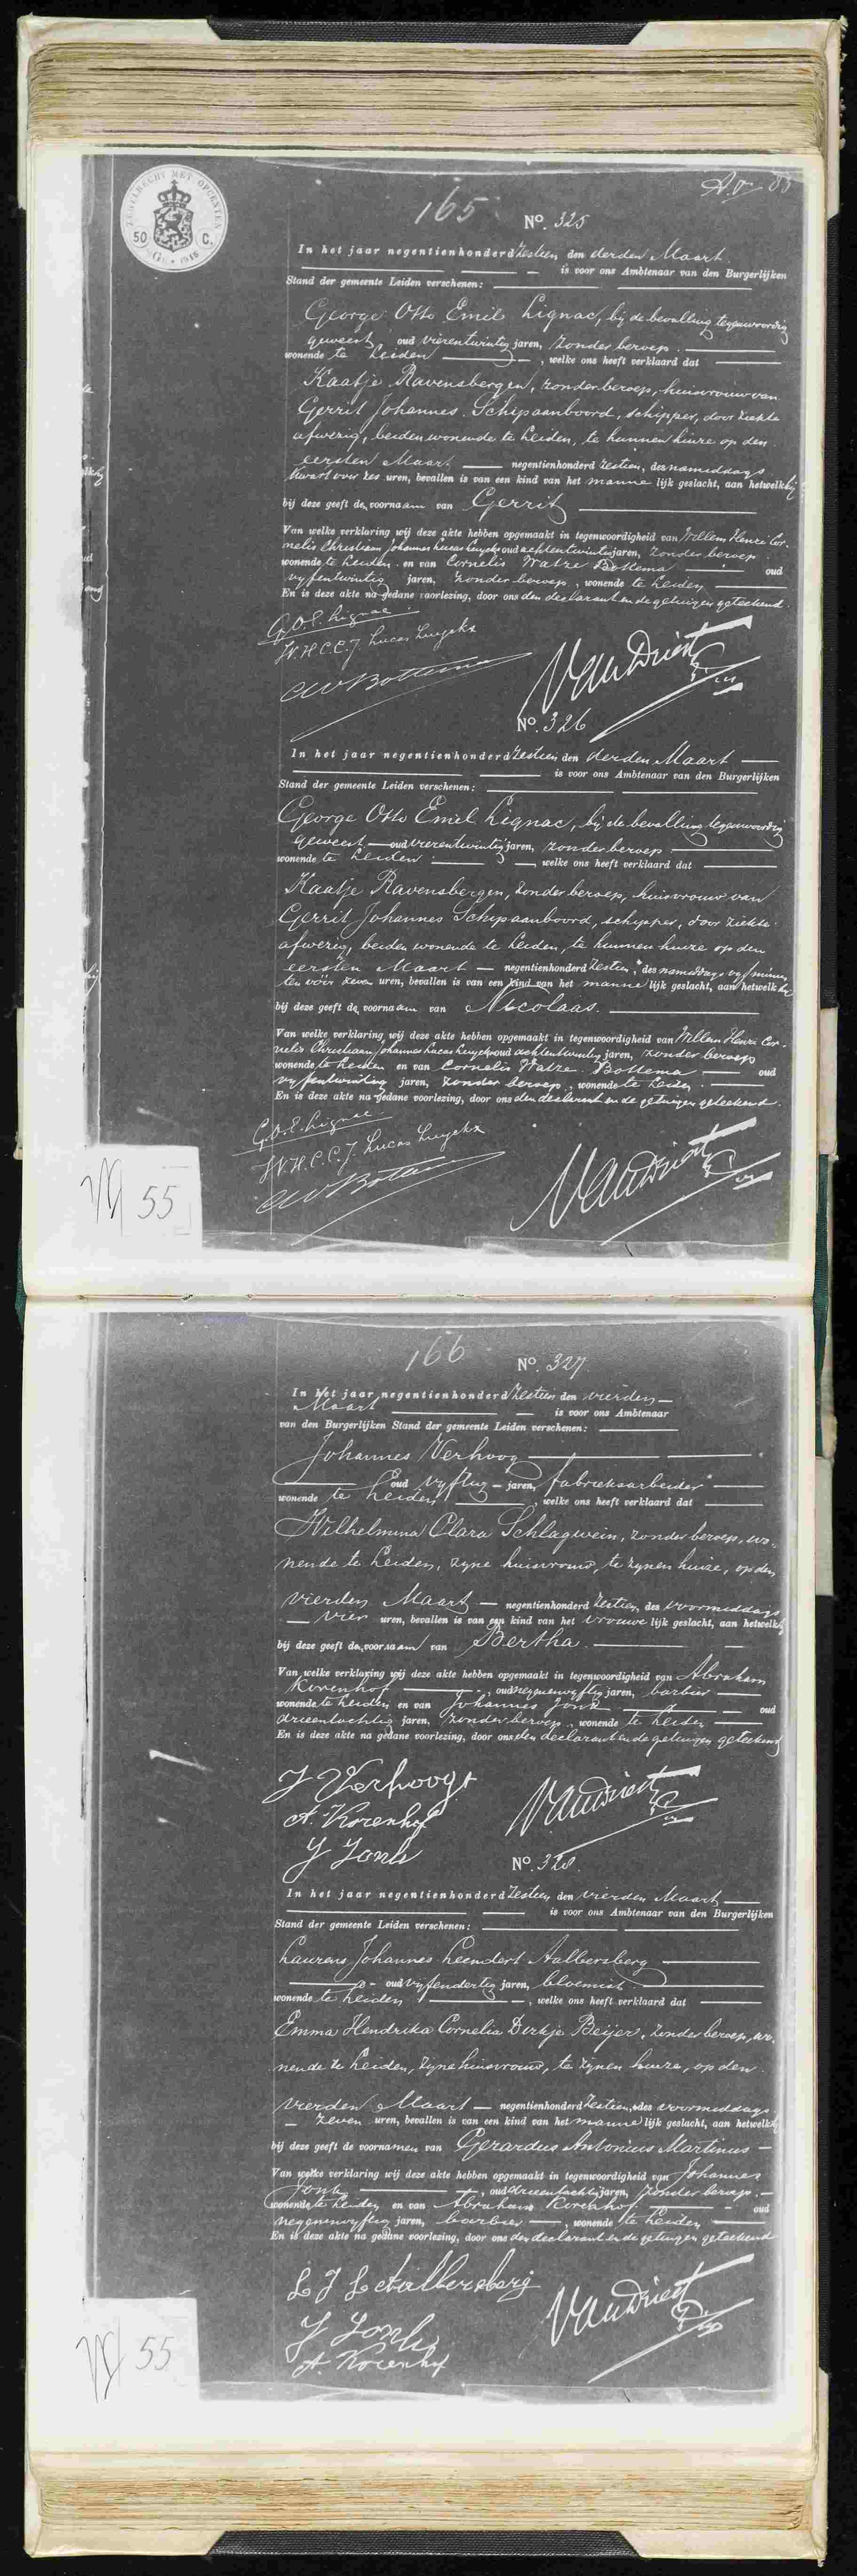 165
ZEGELRECHT MET OPCENTEN
50 C.
No. 325
In het jaar negentienhonderd zestien den derden Maart
is voor ons Ambtenaar van den Burgerlijken
Stand der gemeente Leiden verschenen:
George Otto Emil Lignac, bij de bevalling tegenwoordig
geweest, oud vierentwintig jaren, zonder beroep
wonende te Leiden, welke ons heeft verklaard dat
Kaatje Ravensbergen, zonder beroep, huisvrouw van
Gerrit Johannes Schipaanboord, schipper, door ziekte
afwezig, beiden wonende te Leiden, te hunnen huize op den
eersten Maart negentienhonderd zestien, des namiddags
kwart over zes uren, bevallen is van een kind van het mannelijk geslacht, aan hetwelk hij
bij deze geeft de voornaam van Gerrit
Van welke verklaring wij deze akte hebben opgemaakt in tegenwoordigheid van Willem Henri Cor-
nelis Christiaan Johannes Lucas Luyckx oud achtentwintig jaren, zonder beroep
wonende te Leiden en van Cornelis Watze Bottema oud
vyfentwintig jaren, zonder beroep, wonende te Leiden
En is deze akte na gedane voorlezing, door ons den declarant en de getuigen geteekend.
G.O.E. Lignac
W.H.C.C.J. Lucas Luyckx
CWBottema
No. 326
In het jaar negentienhonderd zestien den derden Maart
is voor ons Ambtenaar van den Burgerlijken
Stand der gemeente Leiden verschenen:
George Otto Emil Lignac, bij de bevalling tegenwoordig
geweest oud vierentwintig jaren, zonder beroep
wonende te Leiden, welke ons heeft verklaard dat
Kaatje Ravensbergen, zonder beroep, huisvrouw van
Gerrit Johannes Schipaanboord, schipper, door ziekte
afwezig, beiden wonende te Leiden, te hunnen huize op den
eersten Maart negentienhonderd zestien, des namiddags vyf minu-
ten vóór zeven uren, bevallen is van een kind van het mannelijk geslacht, aan hetwelk hij
bij deze geeft de voornaam van Nicolaas.
Van welke verklaring wij deze akte hebben opgemaakt in tegenwoordigheid van Willem Henri Cor-
nelis Christiaan Johannes Lucas Luyckx oud achtentwintig jaren, zonder beroep
wonende te Leiden en van Cornelis Watze Bottema oud
vyfentwintig jaren, zonder beroep, wonende te Leiden.
En is deze akte na gedane voorlezing, door ons den declarant en de getuigen geteekend.
G.O.E. Lignac
W.H.C.C.J. Lucas Luyckx
CWBottema
55
166
No. 327
In het jaar negentienhonderd zestien den vierden
Maart is voor ons Ambtenaar
van den Burgerlijken Stand der gemeente Leiden verschenen:
Johannes Verhoog
oud vyftig jaren, fabrieksarbeider
wonende te Leiden, welke ons heeft verklaard dat
Wilhelmina Clara Schlagwein, zonder beroep, wo-
nende te Leiden, zyne huisvrouw, te zynen huize, op den
vierden Maart negentienhonderd zestien, des voormiddags
vier uren, bevallen is van een kind van het vrouwelijk geslacht, aan hetwelk hij
bij deze geeft de voornaam van Bertha.
Van welke verklaring wij deze akte hebben opgemaakt in tegenwoordigheid van Abraham
Korenhof, oud negenenvyftig jaren, barbier
wonende te Leiden en van Johannes Jonk oud
drieentachtig jaren, zonder beroep, wonende te Leiden
En is deze akte na gedane voorlezing, door ons den declarant en de getuigen geteekend
J Verhoogt
A. Korenhof
J Jonk
No. 328.
In het jaar negentienhonderd zestien den vierden Maart
is voor ons Ambtenaar van den Burgerlijken
Stand der gemeente Leiden verschenen:
Laurens Johannes Leendert Aalbersberg
oud vyfendertig jaren, bloemist
wonende te Leiden, welke ons heeft verklaard dat
Emma Hendrika Cornelia Dirkje Beijer, zonder beroep, wo-
nende te Leiden, zyne huisvrouw, te zynen huize, op den
vierden Maart negentienhonderd zestien, des voormiddags
zeven uren, bevallen is van een kind van het mannelijk geslacht, aan hetwelk hij
bij deze geeft de voornamen van Gerardus Antonius Martinus
Van welke verklaring wij deze akte hebben opgemaakt in tegenwoordigheid van Johannes
Jonk, oud drieentachtig jaren, zonder beroep,
wonende te Leiden en van Abraham Korenhof oud
negenenvyftig jaren, barbier, wonende te Leiden
En is deze akte na gedane voorlezing, door ons den declarant en de getuigen geteekend
L J L Aalbersberg
J Jonk
A. Korenhof
55